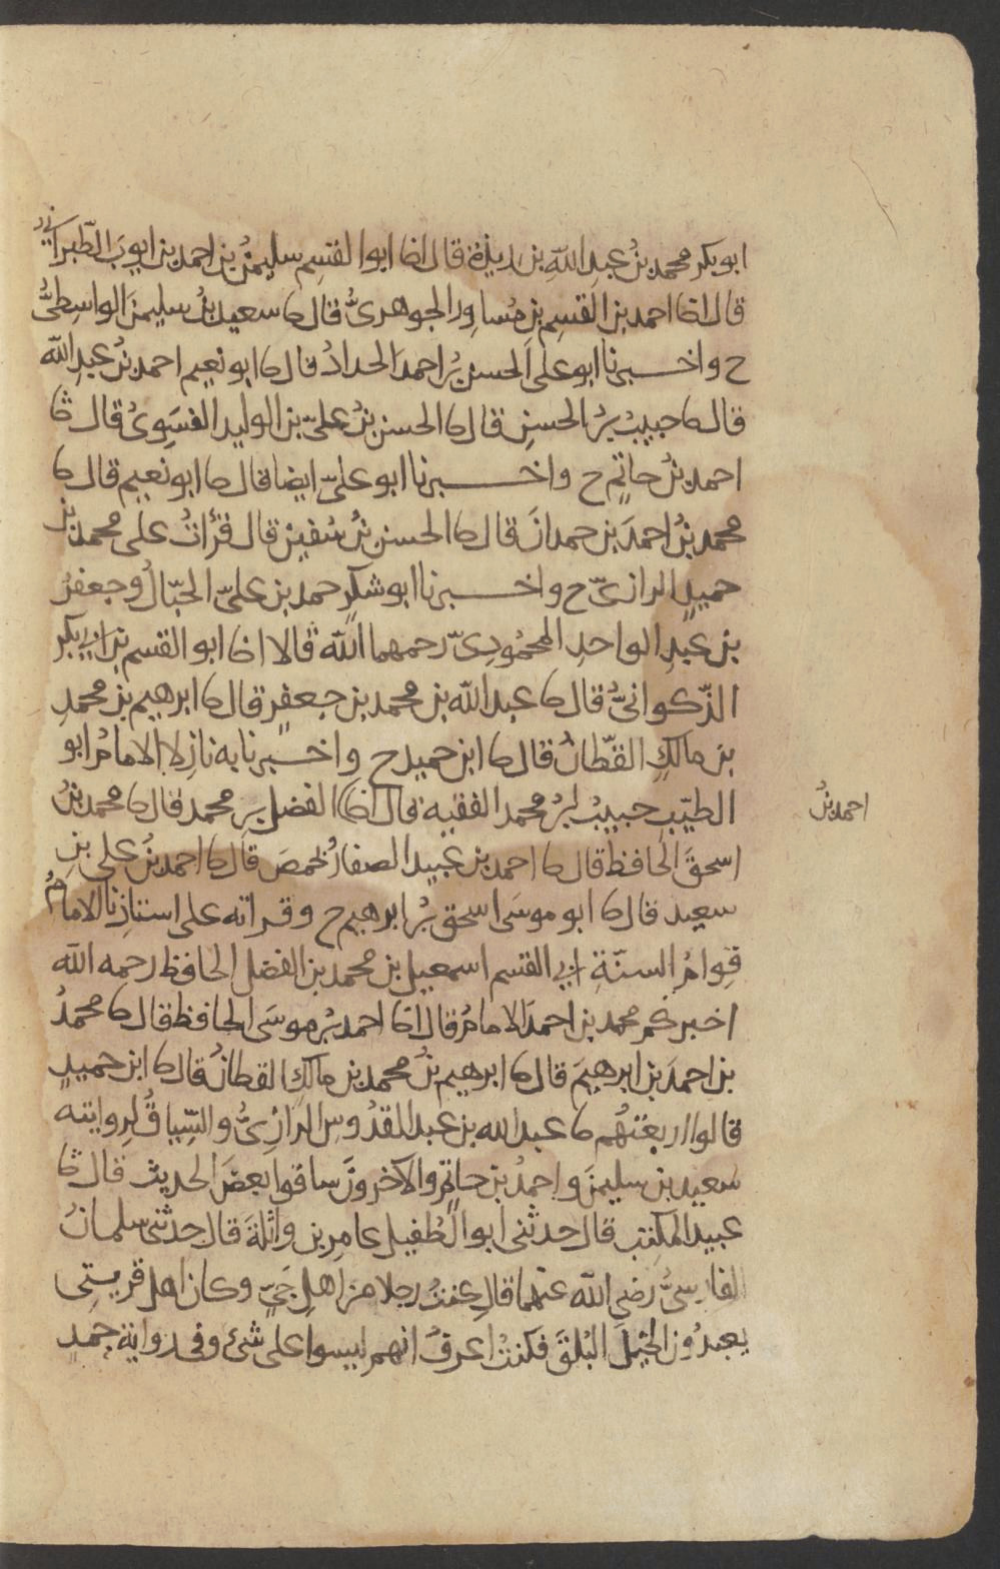 ابو بكر محمد بنُ عبدِ اللهِ بن ريذة قال انا ابوا لقسِم سليمنُ بن احمد بن ايوبَ الطَّبرانيُّ
قال انا احمد بن القسِم بن مُساوِر الجوهريُّ قال نا سعيد بنُ سليمنَ الواسِطيُّ
ح واخــبرنا ابو علي الحسن بنُ احمدَ الحدادُ قال نا ابو نعيم احمد بنُ عبدِ الله
قال نا حبيبُ بنُ الحسنِ قال نا الحسن بنُ عليّ بن الوليد الفسَوِيُّ قال ثنا
احمد بنُ حاتمٍ ح واخــبرنا ابو عليّ ايضا قال نا ابو نعيم قال نا
محمد بنُ احمدَ بن حمدانَ قال نا الحسن بنُ سُفين قال قرأتُ على محمد بن
حميدٍ الرازيّ ح واخــبرنا ابو شكرٍ حمد بن عليّ الحبّالُ وجعفرُ
بن عبدِ الواحدِ المحمُوديّ رحمهما الله قالا انا ابو القسم بن ابي بكر
الذّكوانيُّ قال نا عبد الله بن محمد بن جعفرٍ قال نا ابرهيم بن محمدِ
بن مالكٍ القطّانُ قال نا ابن حميد ح واخــبرنا به نازِلا الامامُ ابو
الطيّب حبيبُ بنُ محمد الفقيه قال انا الفضل بن محمد قال نا محمد بنُ
احمد بنُ
اسحقَ الحافظ قال نا احمد بن عبيد الصفارُ بحمصَ قال نا احمد بنُ علي بنِ
سعيد قال نا ابو موسَى اسحق بنُ ابرهيم ح وقراته على استاذِنا الامامُ
قِوامُ السنّةِ ابي القسم اسمعيل بن محمد بن الفضل الحافظ رحمه الله
اخبركم محمد بن احمدَ الامامُ قال انا احمد بنُ موسَى الحافظ قال نا محمدُ
بن احمدَ بن ابرهيمَ قال نا ابرهيم بنُ محمد بن مالكٍ القطانُ قال نا ابن حميدٍ
قالوا اربعتُهُم نا عبد الله بن عبد القدُوس الرازِيُّ والسِّياقُ لروايته
سعيد بن سليمنَ واحمدُ بن حاتمٍ والآخرونَ ساقوا بعضَ الحديث قال ثنا
عبيد المكتب قال حدثني ابو الطُفيل عامِر بن واثلةَ قال حدثني سلمانُ
الفارسيُّ رضي الله عنهما قال كنتُ رجلا من اهلِ جَيٍّ وكان اهل قريتي
يعبدُون الخيلَ البُلقَ فكنتُ اعرفُ انهم ليسوا على شئ وفي رواية حمد